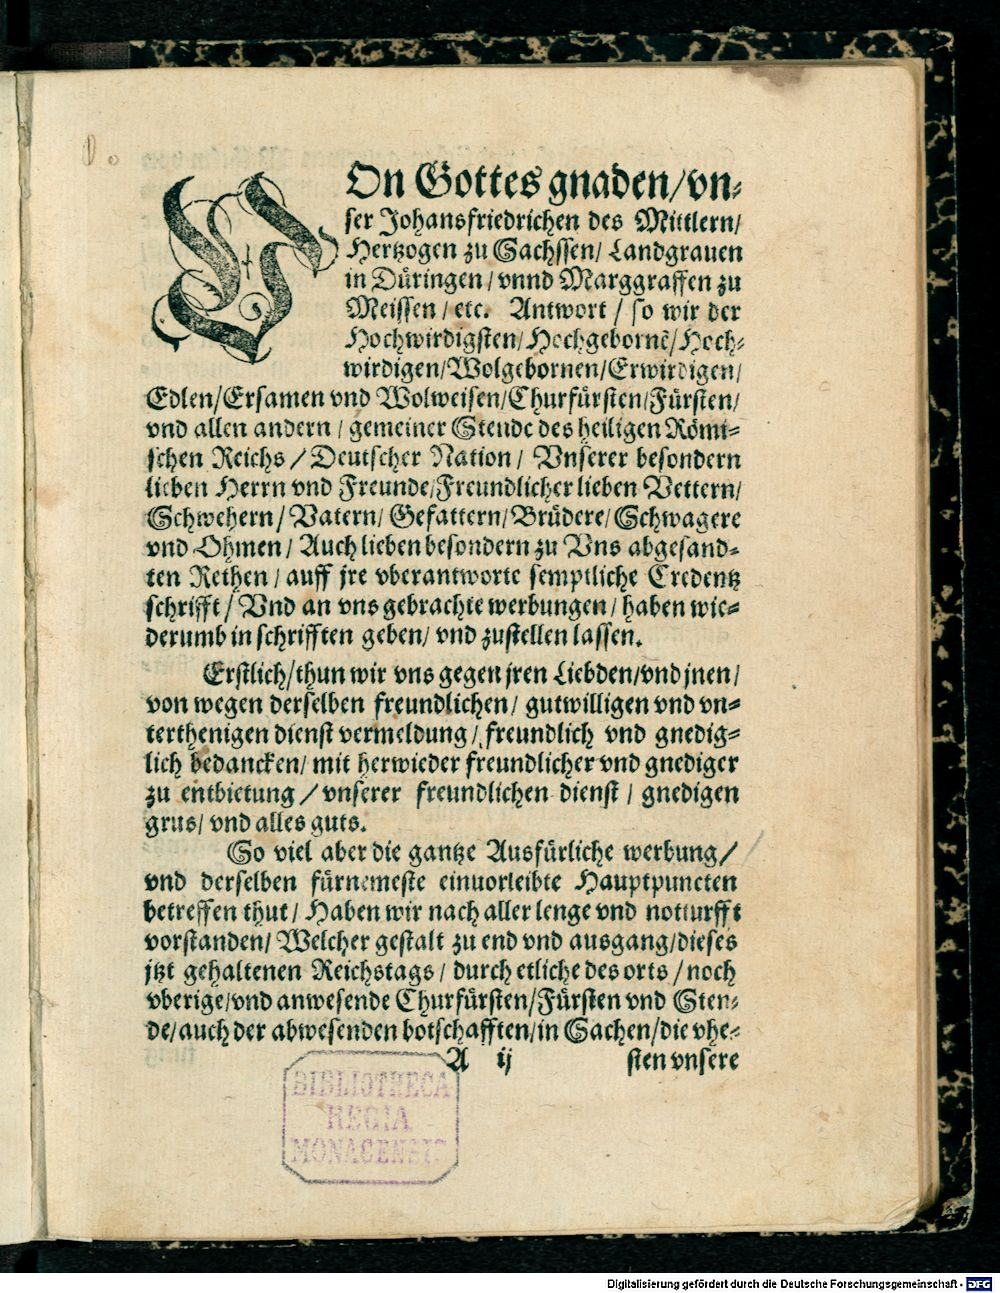 VOn Gottes gnaden/vn-
ser Johansfriedrichen des Mittlern/
Hertzogen zu Sachssen/Landgrauen
in Düringen/vnnd Marggraffen zu
Meissen/etc. Antwort/so wir der
Hochwirdigsten/Hochgebornẽ/Hoch-
wirdigen/Wolgebornen/Erwirdigen/
Edlen/Ersamen vnd Wolweisen/Churfürsten/Fürsten/
vnd allen andern/gemeiner Stende des heiligen Römi-
schen Reichs/Deutscher Nation/Vnserer besondern
lieben Herrn vnd Freunde/Freundlicher lieben Vettern/
Schwehern/Vatern/Gefattern/Brüdere/Schwagere
vnd Ohmen/Auch lieben besondern zu Vns abgesand-
ten Rethen/auff jre vberantworte semptliche Credentz
schrifft/Vnd an vns gebrachte werbungen/haben wie-
derumb in schrifften geben/vnd zustellen lassen.
Erstlich/thun wir vns gegen jren Liebden/vnd jnen/
von wegen derselben freundlichen/gutwilligen vnd vn-
terthenigen dienst vermeldung/freundlich vnd gnedig-
lich bedancken/mit herwieder freundlicher vnd gnediger
zu entbietung/vnserer freundlichen dienst/gnedigen
grus/vnd alles guts.
So viel aber die gantze Ausfürliche werbung/
vnd derselben fürnemeste einuorleibte Hauptpuncten
betreffen thut/Haben wir nach aller lenge vnd notturfft
vorstanden/Welcher gestalt zu end vnd ausgang/dieses
jtzt gehaltenen Reichstags/durch etliche des orts/noch
vberige/vnd anwesende Churfürsten/Fürsten vnd Sten-
de/auch der abwesenden botschafften/in Sachen/die vhe-
A ij sten vnsere
BIBLIOTHECA
REGIA
MONACENSIS
Digitalisierung gefördert durch die Deutsche Forschungsgemeinschaft - DFG